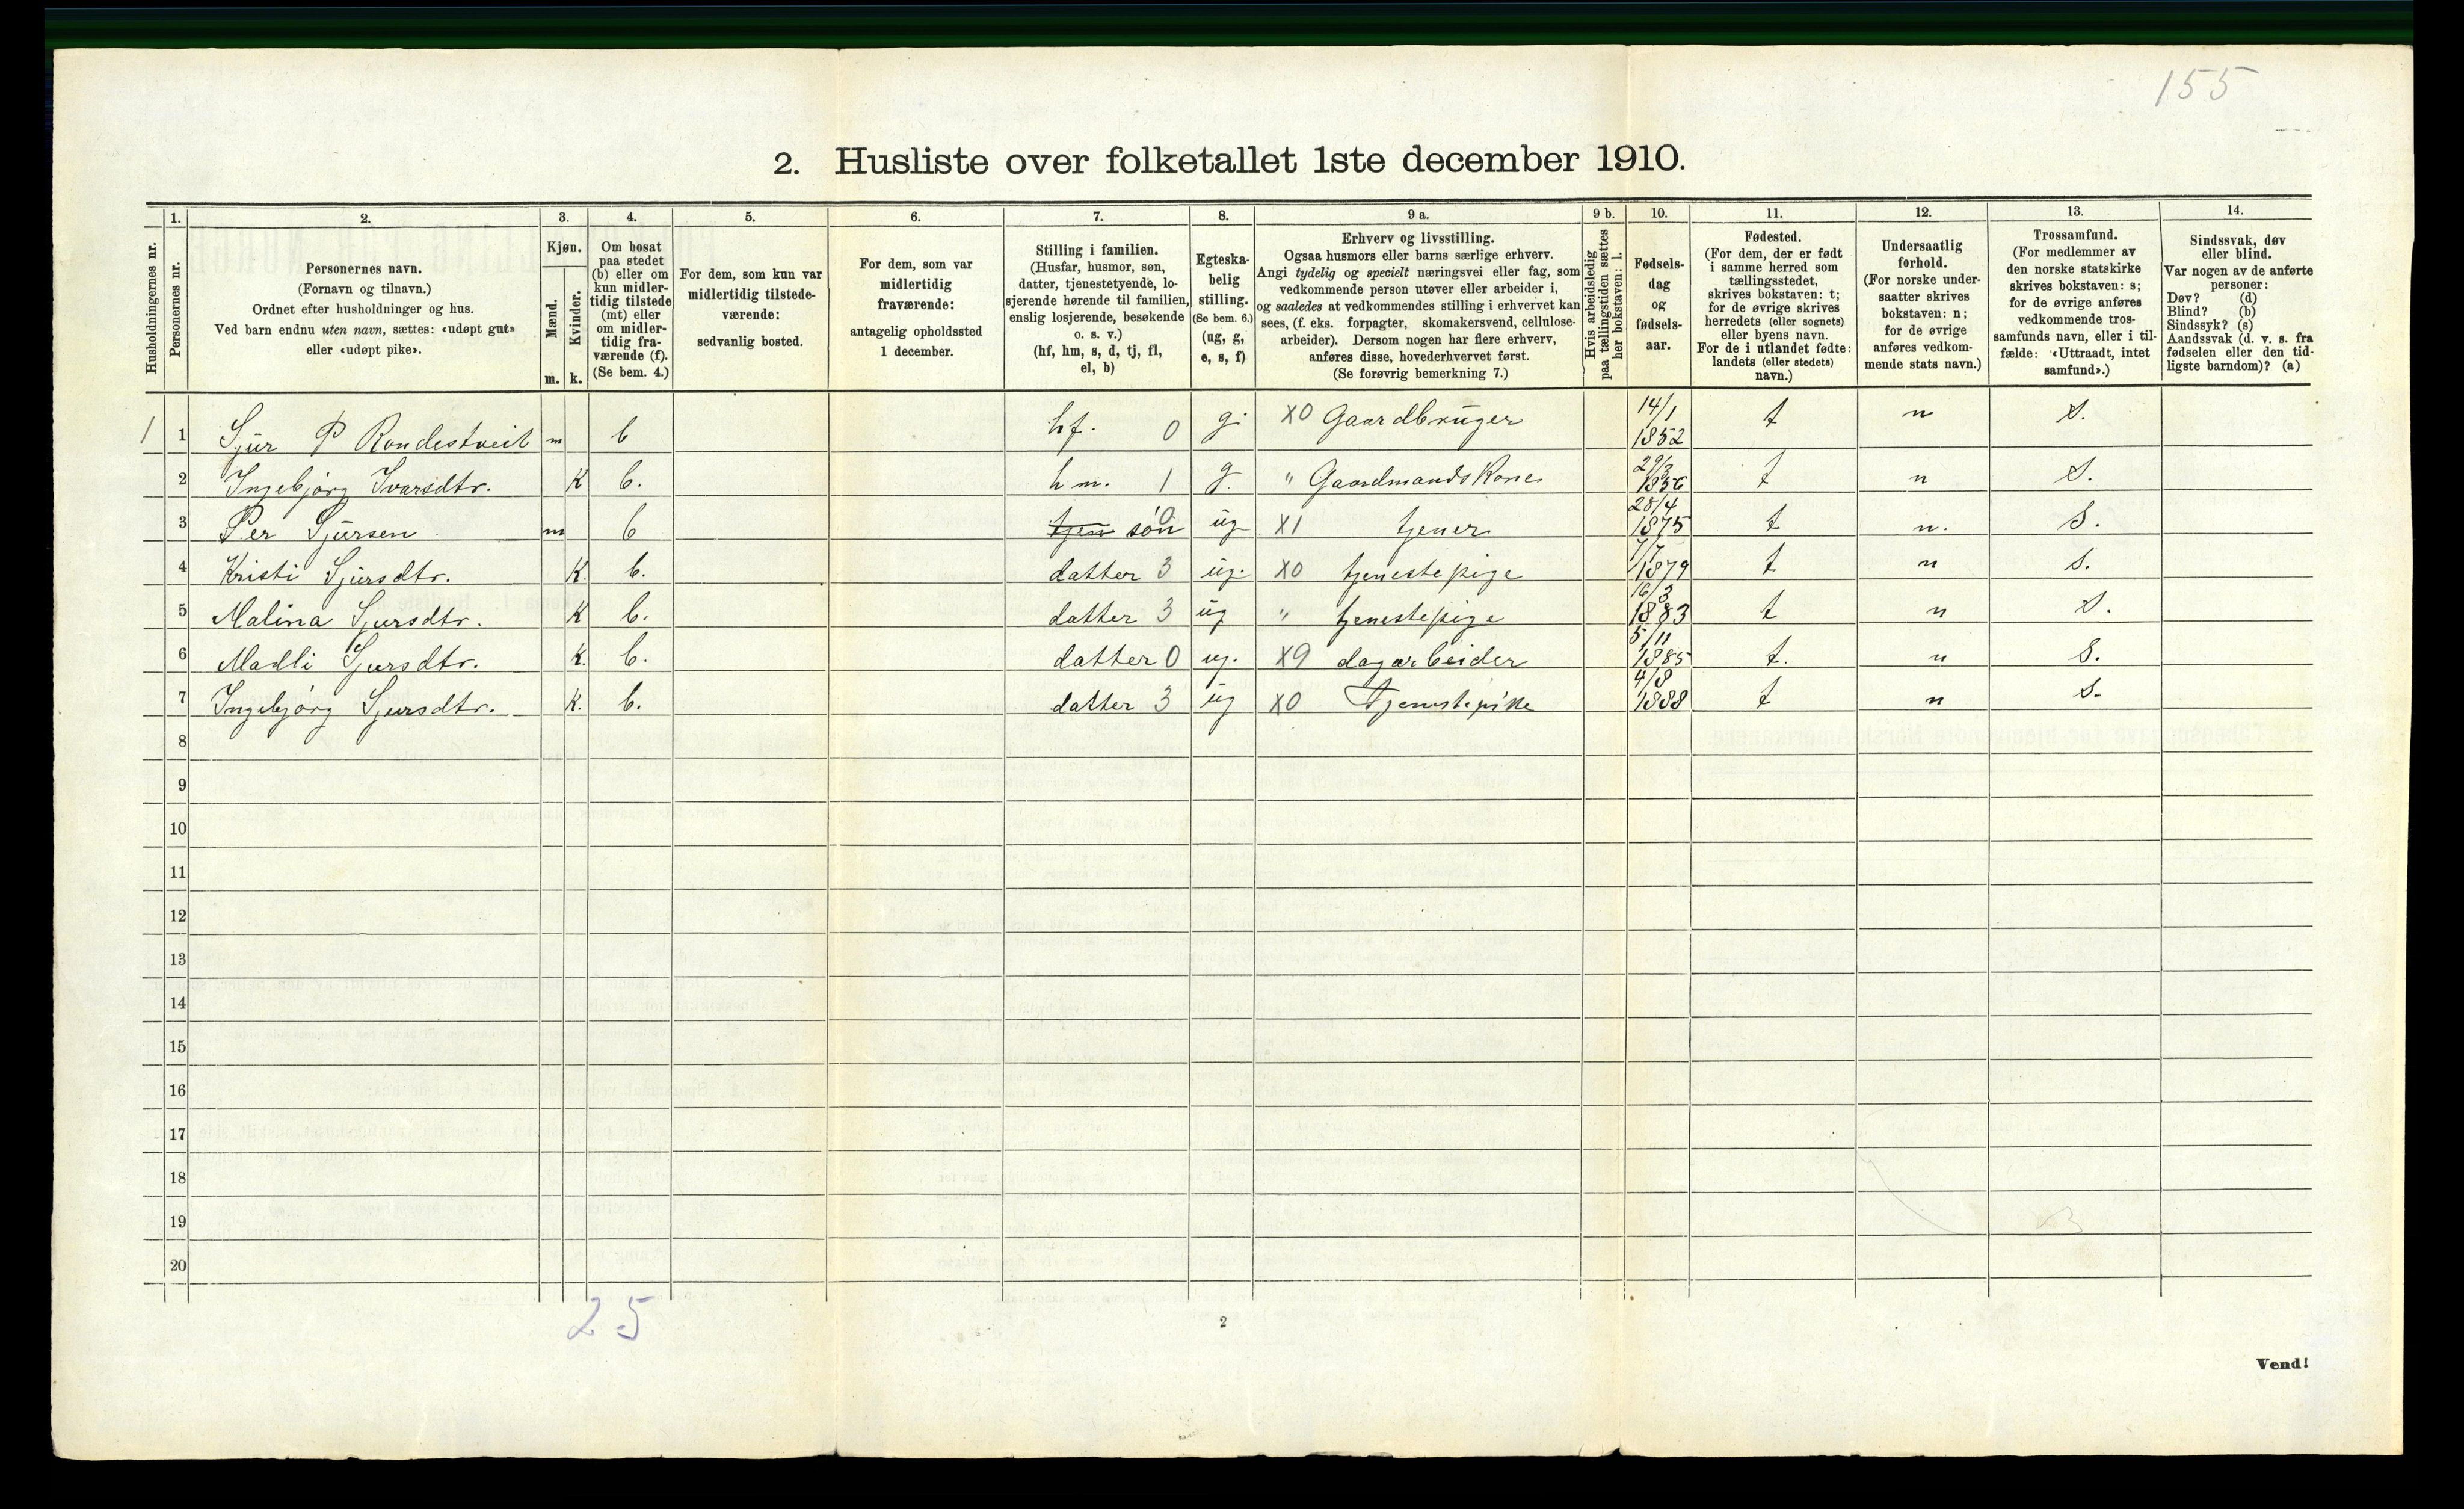 155
2. Husliste over folketallet 1ste december 1910.
Husholdningernes nr.
1.
Personernes nr.
2.
Personernes navn.
(Fornavn og tilnavn.)
Ordnet efter husholdninger og hus.
Ved barn endnu uten navn, sættes: «udøpt gut»
eller «udøpt pike».
3.
Kjøn.
Mænd.
Kvinder.
m. k.
4.
Om bosat
paa stedet
(b) eller om
kun midler-
tidig tilstede
(mt) eller
om midler-
tidig fra-
værende (f).
(Se bem. 4.)
5.
For dem, som kun var
midlertidig tilstede-
værende:
sedvanlig bosted.
6.
For dem, som var
midlertidig
fraværende:
antagelig opholdssted
1 december.
7.
Stilling i familien.
(Husfar, husmor, søn,
datter, tjenestetyende, lo-
sjerende hørende til familien,
enslig losjerende, besøkende
o. s. v.)
(hf, hm, s, d, tj, fl,
el, b)
8.
Egteska-
belig
stilling.
(Se bem. 6.)
(ug, g,
e, s, f)
9 a.
Erhverv og livsstilling.
Ogsaa husmors eller barns særlige erhverv.
Angi tydelig og specielt næringsvei eller fag, som
vedkommende person utøver eller arbeider i,
og saaledes at vedkommendes stilling i erhvervet kan
sees, (f. eks. forpagter, skomakersvend, cellulose-
arbeider). Dersom nogen har flere erhverv,
anføres disse, hovederhvervet først.
(Se forøvrig bemerkning 7.)
9 b.
Hvis arbeidsledig
paa tællingstiden sættes
her bokstaven: l.
10.
Fødsels-
dag
og
fødsels-
aar.
11.
Fødested.
(For dem, der er født
i samme herred som
tællingsstedet,
skrives bokstaven: t;
for de øvrige skrives
herredets (eller sognets)
eller byens navn.
For de i utlandet fødte:
landets (eller stedets)
navn.)
12.
Undersaatlig
forhold.
(For norske under-
saatter skrives
bokstaven: n;
for de øvrige
anføres vedkom-
mende stats navn.)
13.
Trossamfund.
(For medlemmer av
den norske statskirke
skrives bokstaven: s;
for de øvrige anføres
vedkommende tros-
samfunds navn, eller i til-
fælde: «Uttraadt, intet
samfund».)
14.
Sindssvak, døv
eller blind.
Var nogen av de anførte
personer:
Døv? (d)
Blind? (b)
Sindssyk? (s)
Aandssvak (d. v. s. fra
fødselen eller den tid-
ligste barndom)? (a)
1 1 Sjur P Rondestveit m b hf. 0 g. X0 Gaardbruger 14/1 1852 t n S.
2 Ingebjørg Ivarsdtr. K b. hm. 1 g. " Gaardmands Kone 29/3 1856 t n S.
3 Per Sjursen m b tjen søn 0 ug X1 tjener 28/4 1875 t n. S.
4 Kristi Sjursdtr. K. b. datter 3 ug. X0 tjenestepige 7/7 1879 t n S.
5 Malina Sjursdtr. K b. datter 3 ug " tjenestepige 16/3 1883 t n S.
6 Madli Sjursdtr. K. b. datter 0 ug. X9 dagarbeider 5/11 1885 t. n S.
7 Ingebjørg Sjursdtr. K. b. datter 3 ug X0 Tjenestepike 4/8 1888 t n S.
8
9
10
11
12
13
14
15
16
17
18
19
20
25
2
Vend!